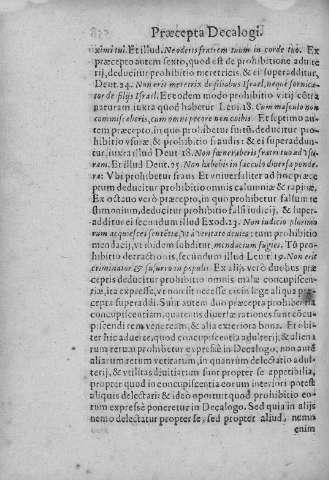 Præcepta Decalogi.
ximi tui. Et illud. Ne oderis fratrem tuum in corde tuo. Ex
præcepto autem sexto, quod est de prohibitione adulte
rij, deducitur prohibitio meretricis, & ei superadditur,
Deut. 24. Non erit meretrix de filiabus Israel, neque fornica-
tor de filijs Israel. Et eodem modo prohibitio vitij cõtra
naturam iuxta quod habetur Leui. 18. Cum masculo non
commisceberis, cum omni pecore non coibis. Et septimo au-
tem præcepto, in quo prohibetur furtũ. deducitur pro-
hibitio vsuræ & prohibitio fraudis: & ei superaddun-
tur, iuxta illud Deut. 28. Non fœneraberis fratri tuo ad vsu-
ram. Et illud Deut. 25. Non habebis in sacculo diuersa ponde
ra: Vbi prohibetur fraus Et vniuersaliter ad hoc præce
ptum deducitur prohibitio omnis calumniæ & rapinæ,
Ex octauo verò præcepto, in quo prohibetur falsum te
stimonium, deducitur prohibitio falsi iudicij, & super-
additur ei secundum illud Exod. 23. Non iudicio plurimo
rum acquiesces sentẽtiæ, vt à veritate deuies: tum prohibitio
mendacij, vt ibidem subditur, mendacium fugies, Tũ pro-
hibitio detractionis, secundum illud Leuit. 19. Non erit
criminator & susurro in populis. Ex alijs verò duobus præ
ceptis deducitur prohibitio omnis malæ concupiscen-
tiæ, ita expressè, vt non sit necesse ei in lege aliqua præ
cepta superaddi. Sunt autem duo præcepta prohibentia
concupiscentiam, quatenus diuersæ rationes sunt cõcu-
piscendi rem veneream, & alia exteriora bona. Et obi-
ter hic aduerte, quod concupiscentia adulterij, & aliena
rum rerum prohibetur expressè in Decalogo, non autẽ
aliarum rerum vetitarum, in quantum delectatio adul-
terij, & vtilitas diuitiarum sunt propter se appetibilia,
propter quod in concupiscentia eorum interiori potest
aliquis delectari: & ideo oportuit quod prohibitio eo-
rum expressè poneretur in Decalogo. Sed quia in alijs
nemo delectatur propter se, sed propter aliud, nemo
enim